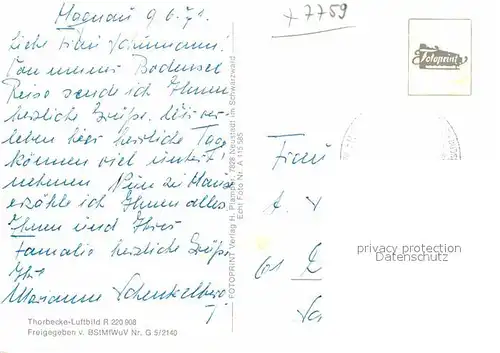 Hagnau 9.6.71.
Liebe Frau Schümann!
Von unserer Bodensee
Reise sende ich Ihnen
herzliche Grüße. Wir ver-
leben hier herrliche Tage
können viel unter
nehmen
erzähle ich Ihnen alles
Ihnen und Ihrer
Familie herzliche Grüße
Ihre
Marianne Schenkelberg
Thorbecke-Luftbild R 220 908
Freigegeben v. BStMfWuV Nr. G 5/2140
FOTOPRINT Verlag H. Plampe, 7828 Neustadt im Schwarzwald
Echt Foto Nr. A 115 585
x 7759
Fotoprint
Frau
privacy protection
Datenschutz